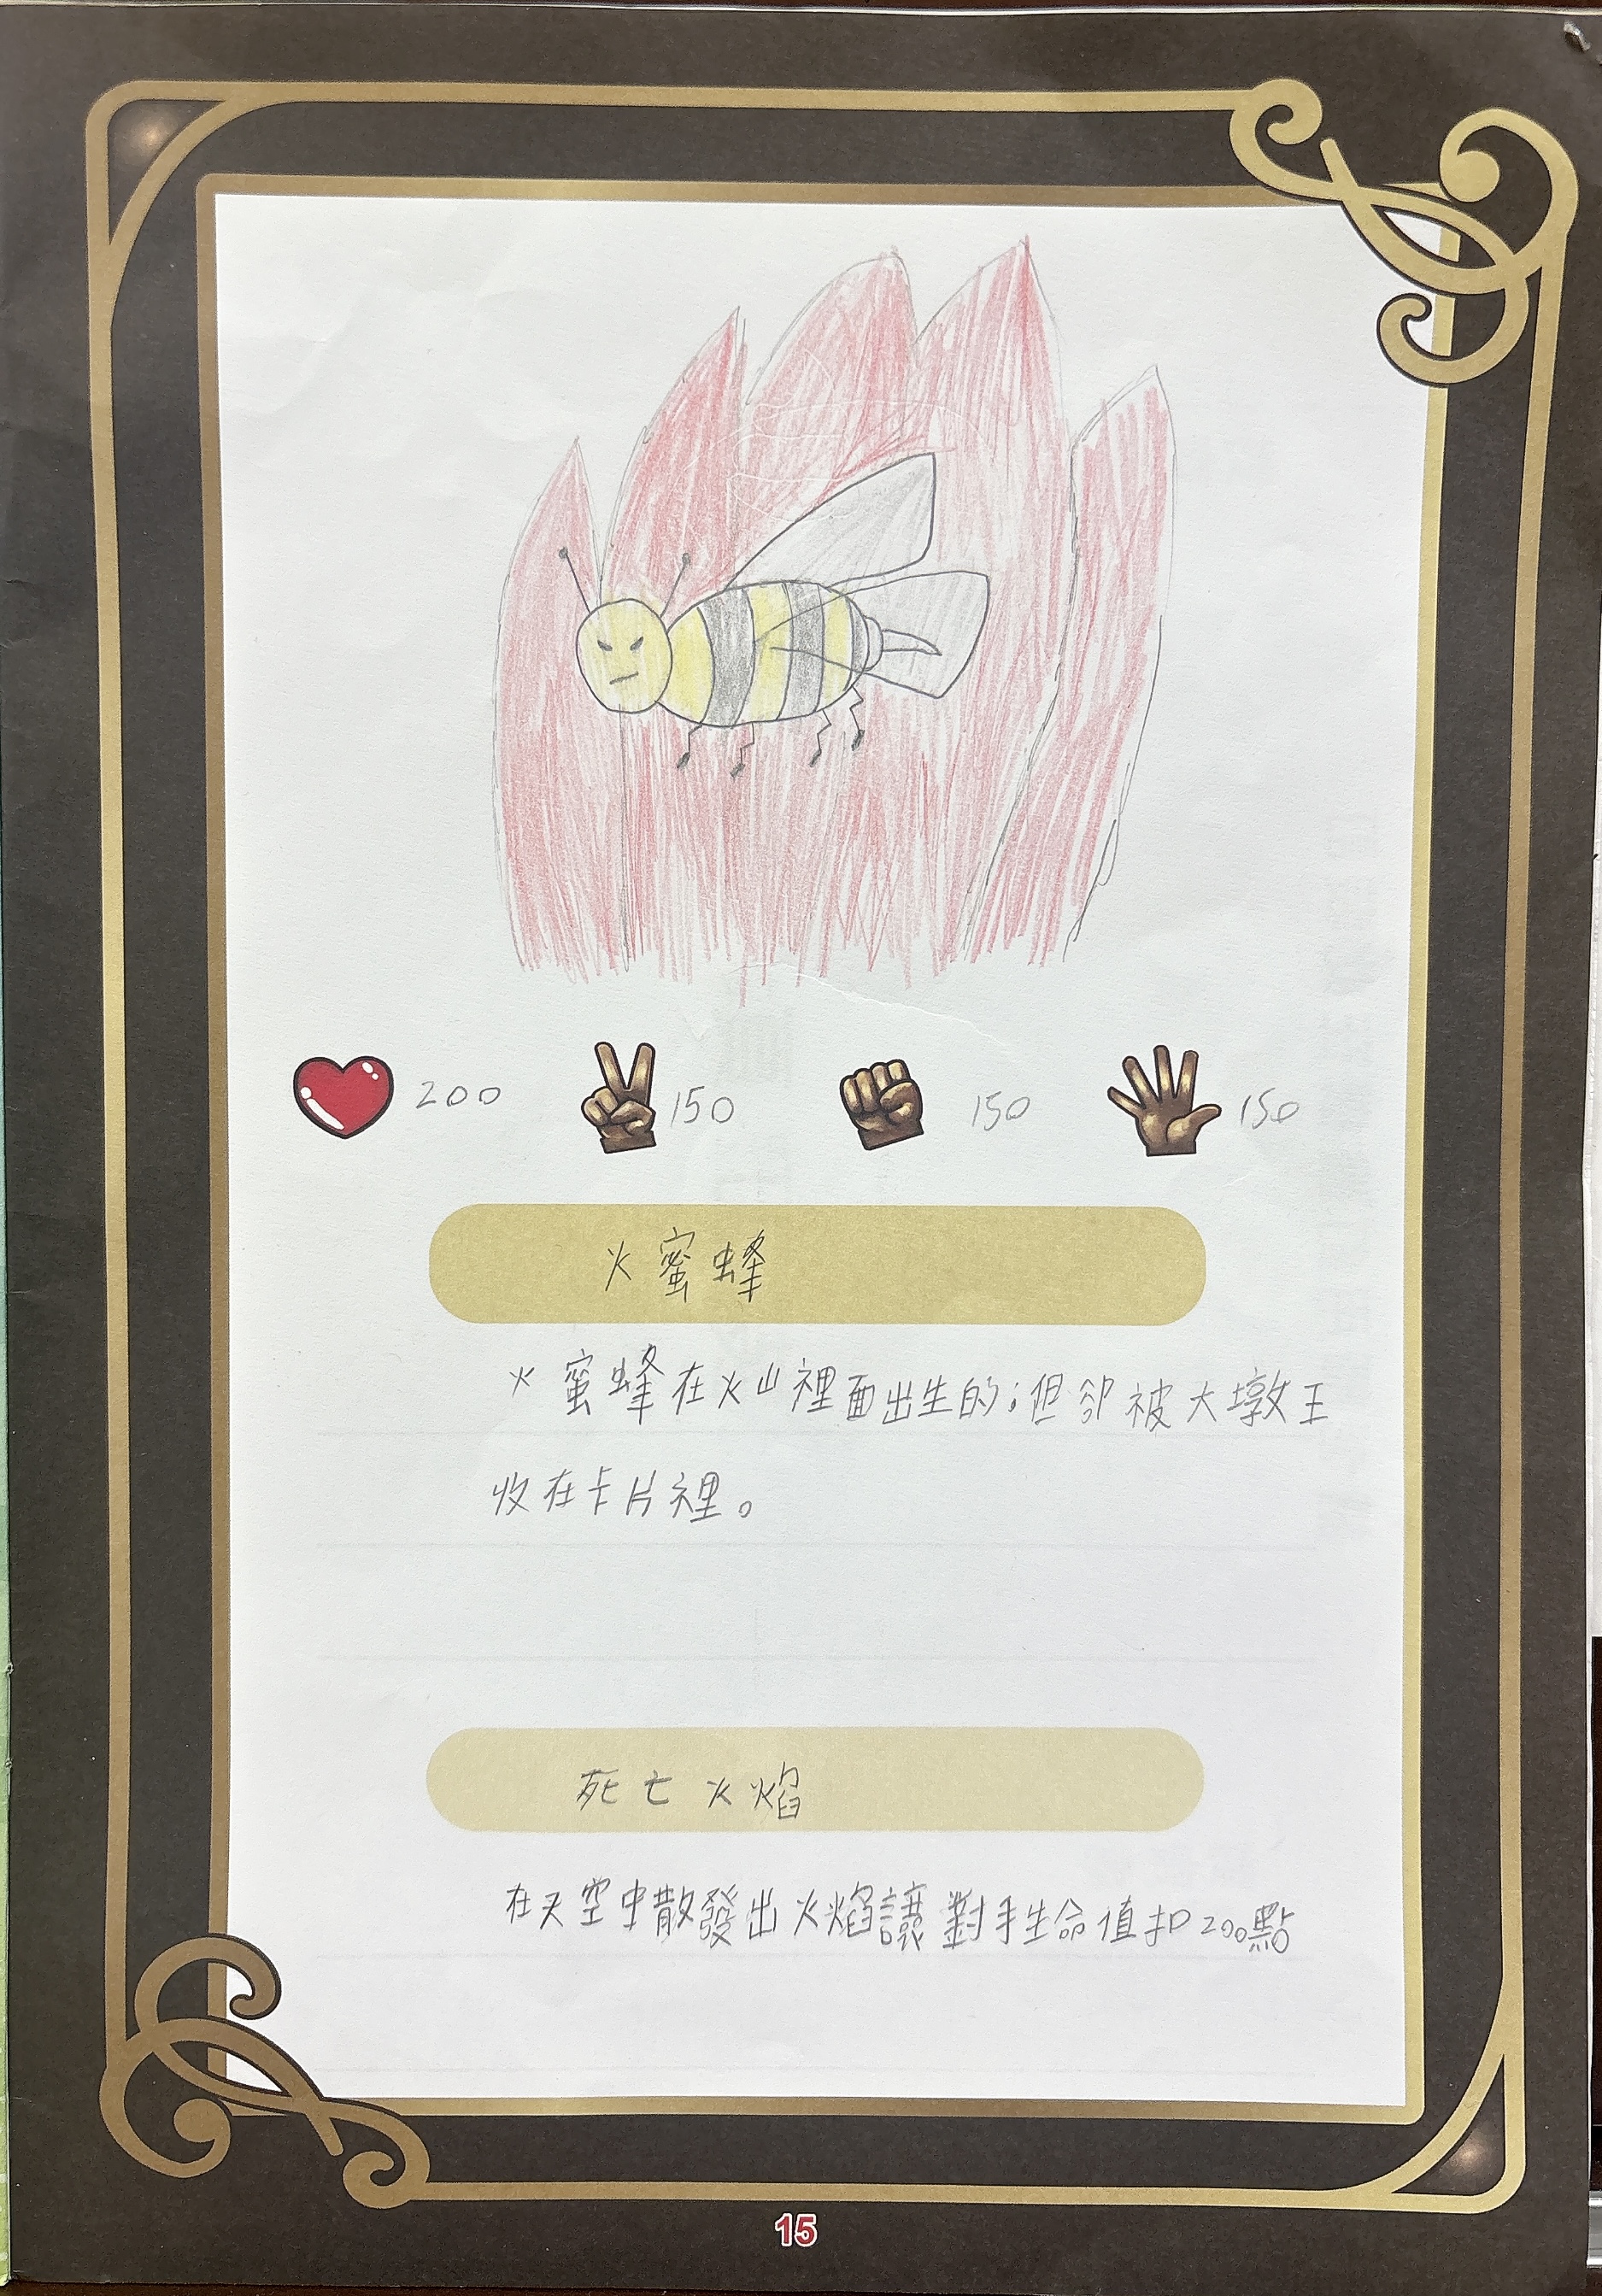 200 150 150 150
火蜜蜂
火蜜蜂在火山裡面出生的；但卻被大墩王
收在卡片裡。
死亡火焰
在天空中散發出火焰讓對手生命值扣200點
15